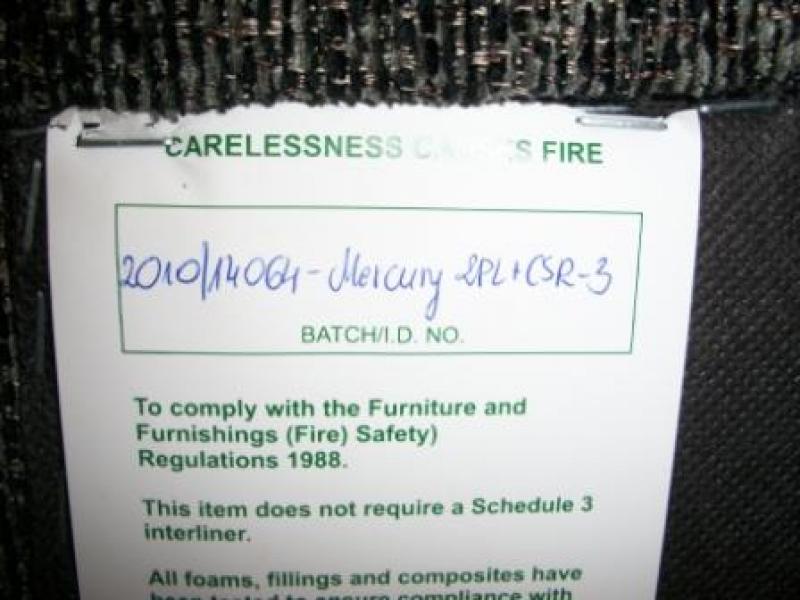 CARELESSNESS CAUSES FIRE
2010/14064 - Mercury 2PL+CSR-3
BATCH/I.D. NO.
To comply with the Furniture and
Furnishings (Fire) Safety)
Regulations 1988.
This item does not require a Schedule 3
interliner.
All foams, fillings and composites have
been tested to ensure compliance with